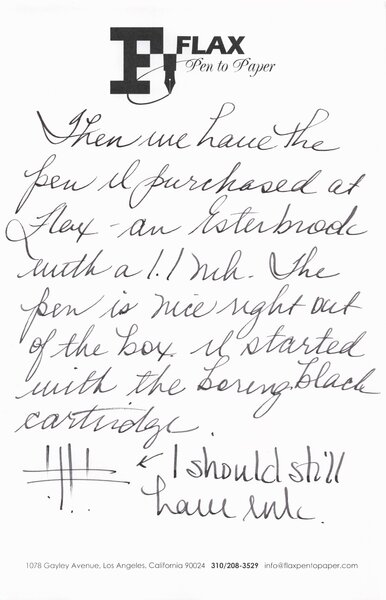 FLAX
Pen to Paper
Then we have the
pen I purchased at
Flax - an Esterbrook
with a 1.1 nib. The
pen is nice right out
of the box. I started
with the boring black
cartridge.
I should still
have ink.
1078 Gayley Avenue, Los Angeles, California 90024 310/208-3529 info@flaxpentopaper.com